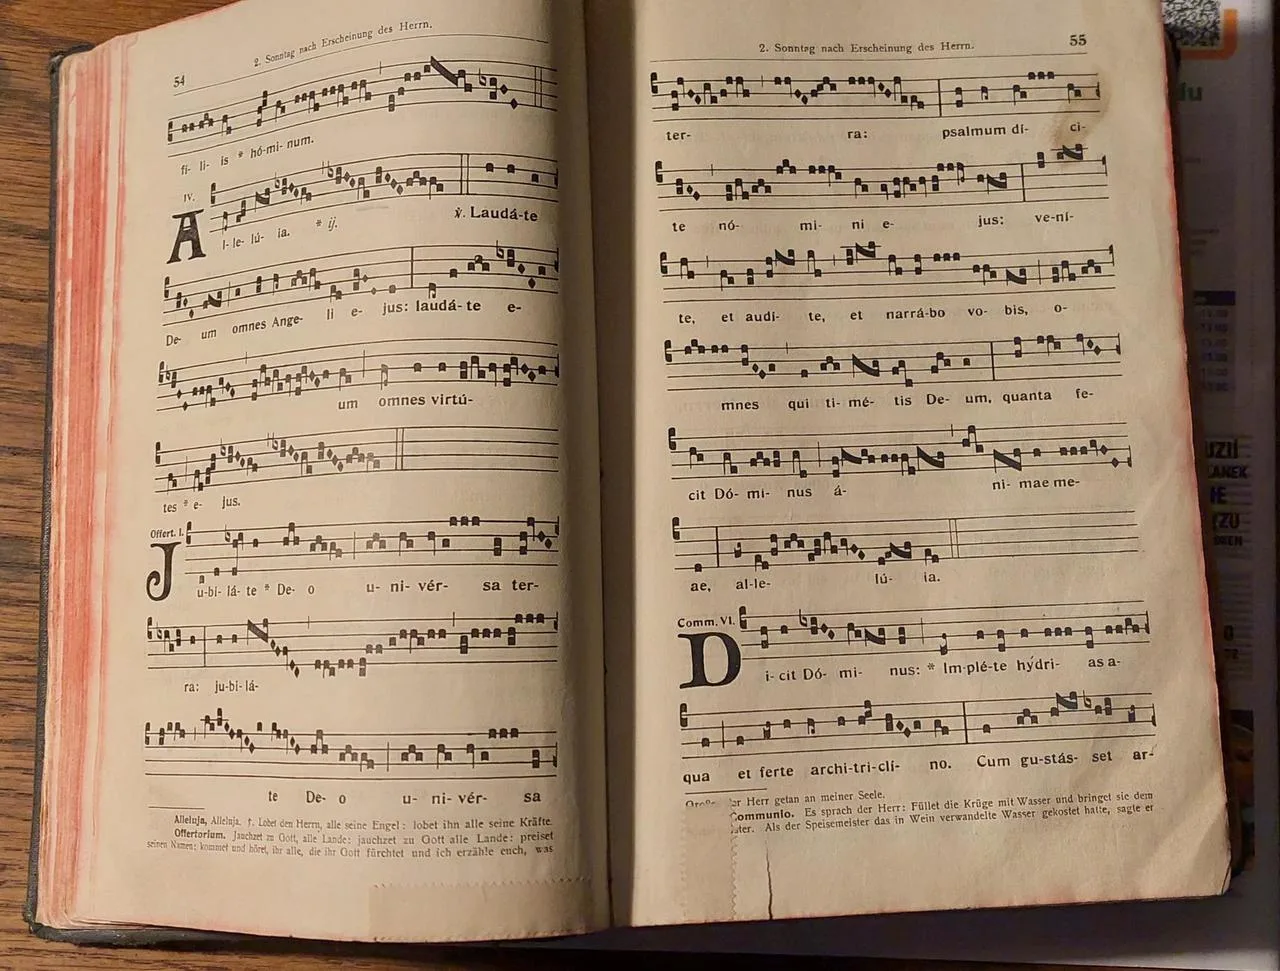 54
2. Sonntag nach Erscheinung des Herrn.
fi- li- is * hó-mi-num.
IV.
A
l-le-lú- ia. * ij. ℣. Laudá-te
De- um omnes Ange- li e- jus: laudá-te e-
um omnes virtú-
tes * e- jus.
Offert. I.
J
u-bi-lá-te * De- o u- ni- vér- sa ter-
ra: ju-bi-lá-
te De- o u- ni- vér- sa
Alleluja, Alleluja. ℣. Lobet den Herrn, alle seine Engel: lobet ihn alle seine Kräfte.
Offertorium. Jauchzet zu Gott, alle Lande: jauchzet zu Gott alle Lande: preiset
seinen Namen: kommet und höret, ihr alle, die ihr Gott fürchtet und ich erzähle euch, was
2. Sonntag nach Erscheinung des Herrn.
55
ter- ra: psalmum dí- ci-
te nó- mi- ni e- jus: ve-ní-
te, et audí- te, et narrá-bo vo- bis, o-
mnes qui ti-mé- tis De- um, quanta fe-
cit Dó- mi- nus á- ni- mae me-
ae, al-le- lú- ia.
Comm. VI.
D
i- cit Dó- mi- nus: * Im-plé-te hýdri- as a-
qua et ferte archi-tri-clí- no. Cum gu-stás- set ar-
der Herr getan an meiner Seele.
Communio. Es sprach der Herr: Füllet die Krüge mit Wasser und bringet sie dem
Als der Speisemeister das in Wein verwandelte Wasser gekostet hatte, sagte er